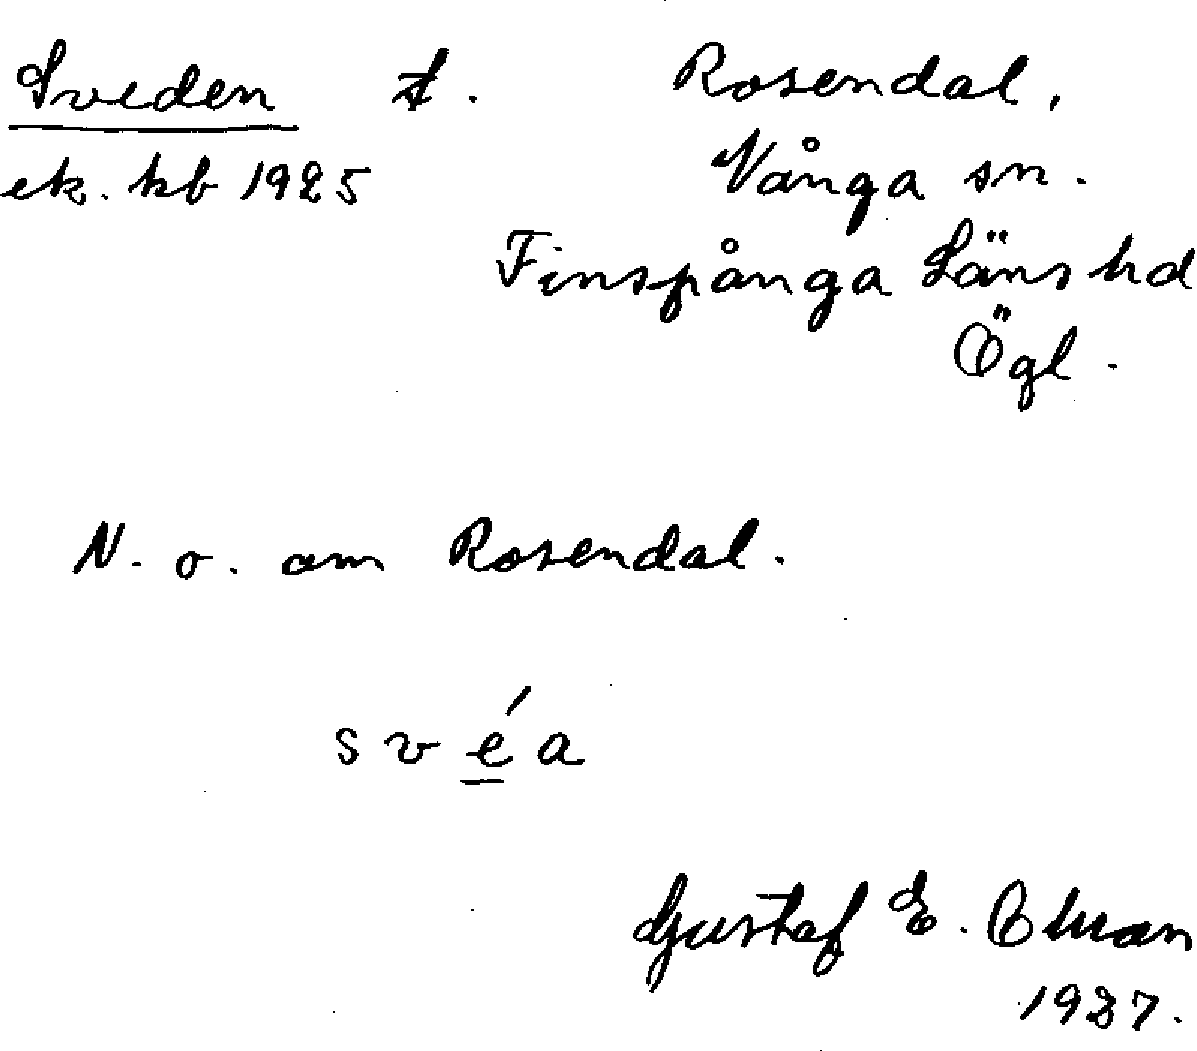 Sveden t. Rosendal,
ek. kb 1925 Vånga sn.
Finspånga Läns hd
Ögl.
N. o. om Rosendal.
s v é a
Gustaf E. Öman
1937.